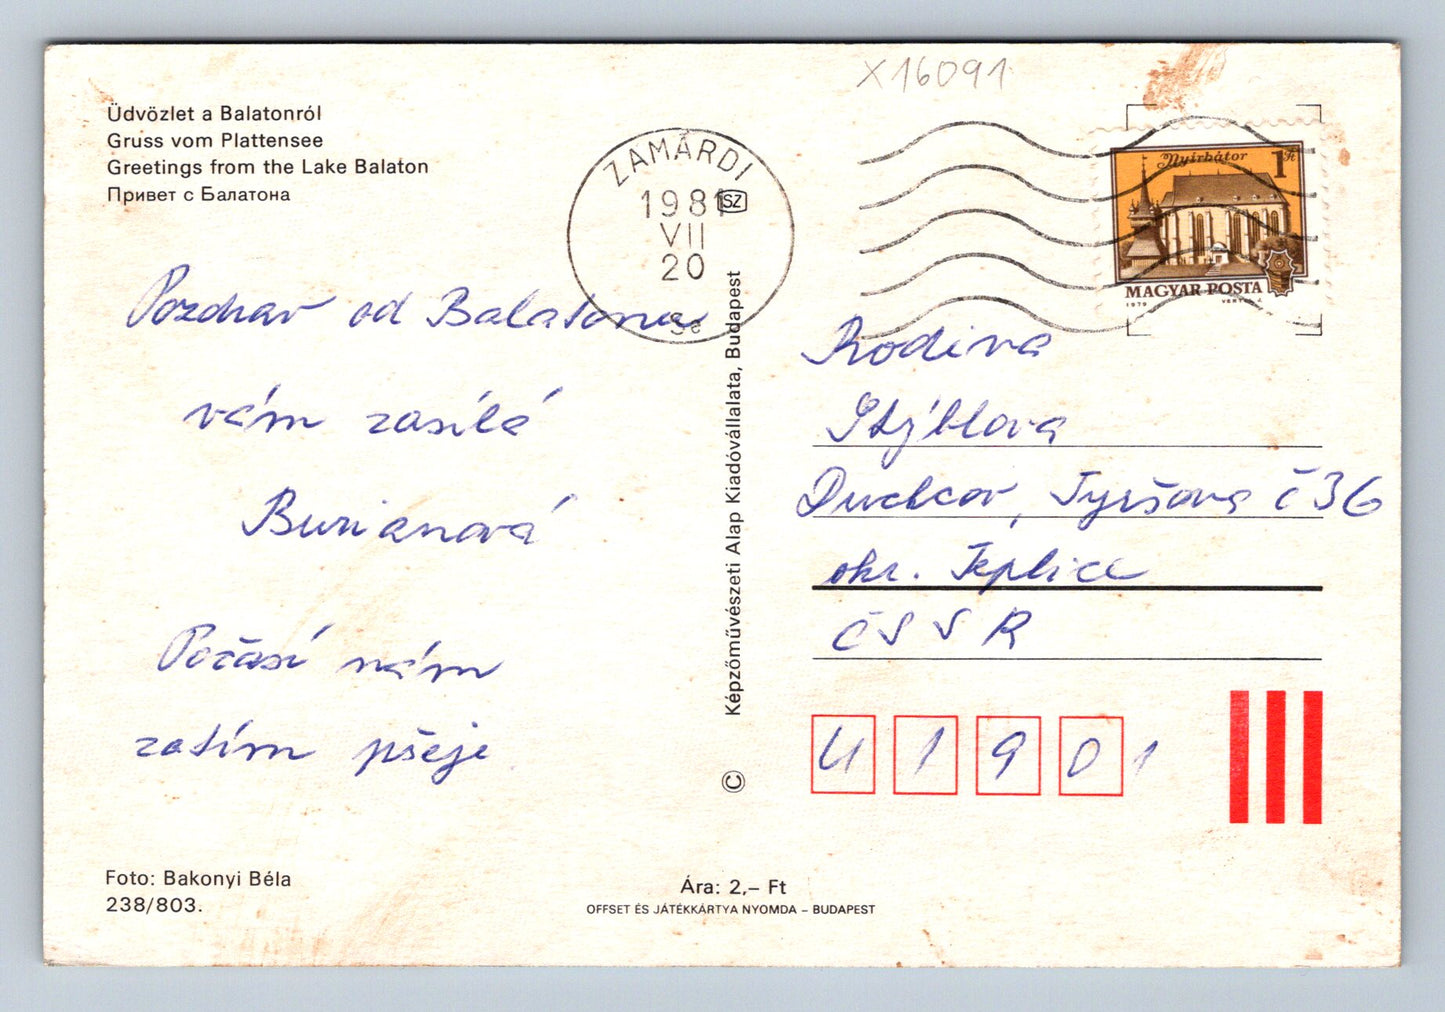 Üdvözlet a Balatonról
Gruss vom Plattensee
Greetings from the Lake Balaton
Привет с Балатона
X16091
ZAMÁRDI
1981
SZ
VII
20
Nyírbátor
1 Ft
MAGYAR POSTA
1979
Pozdrav od Balatonu
vám zasílá
Burianová
Počasí nám
zatím přeje
Rodina
Stýblova
Duchcov, Tyršova č 36
okr. Teplice
ČSSR
41901
Képzőművészeti Alap Kiadóvállalata, Budapest
©
Foto: Bakonyi Béla
238/803.
Ára: 2,– Ft
OFFSET ÉS JÁTÉKKÁRTYA NYOMDA – BUDAPEST